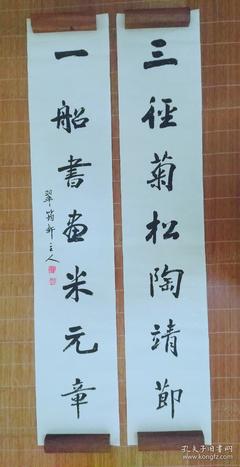 三徑菊松陶靖節
一船書畫米元章
翠筠軒主人
孔夫子旧书网
www.kongfz.com